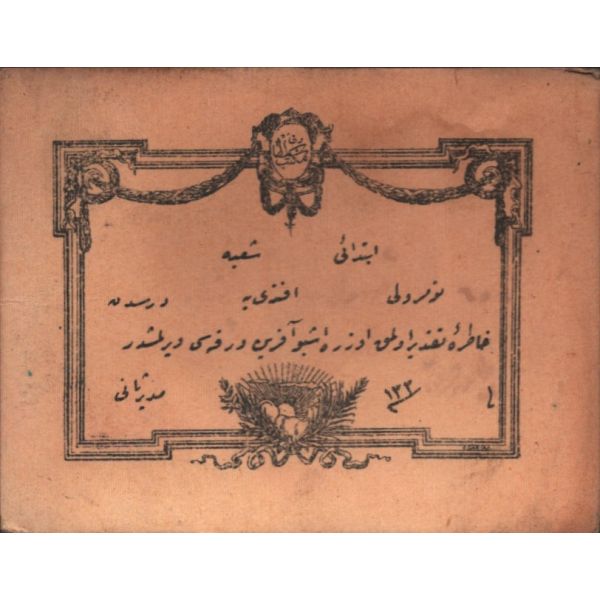 ابتدائی شعبه
نومرولی افندی یه درسدن
خاطرهٔ تقدیر اولمق اوزره اشبو آفرین ورقه سی ویرلمشدر
١٣٣ مدیر ثانی